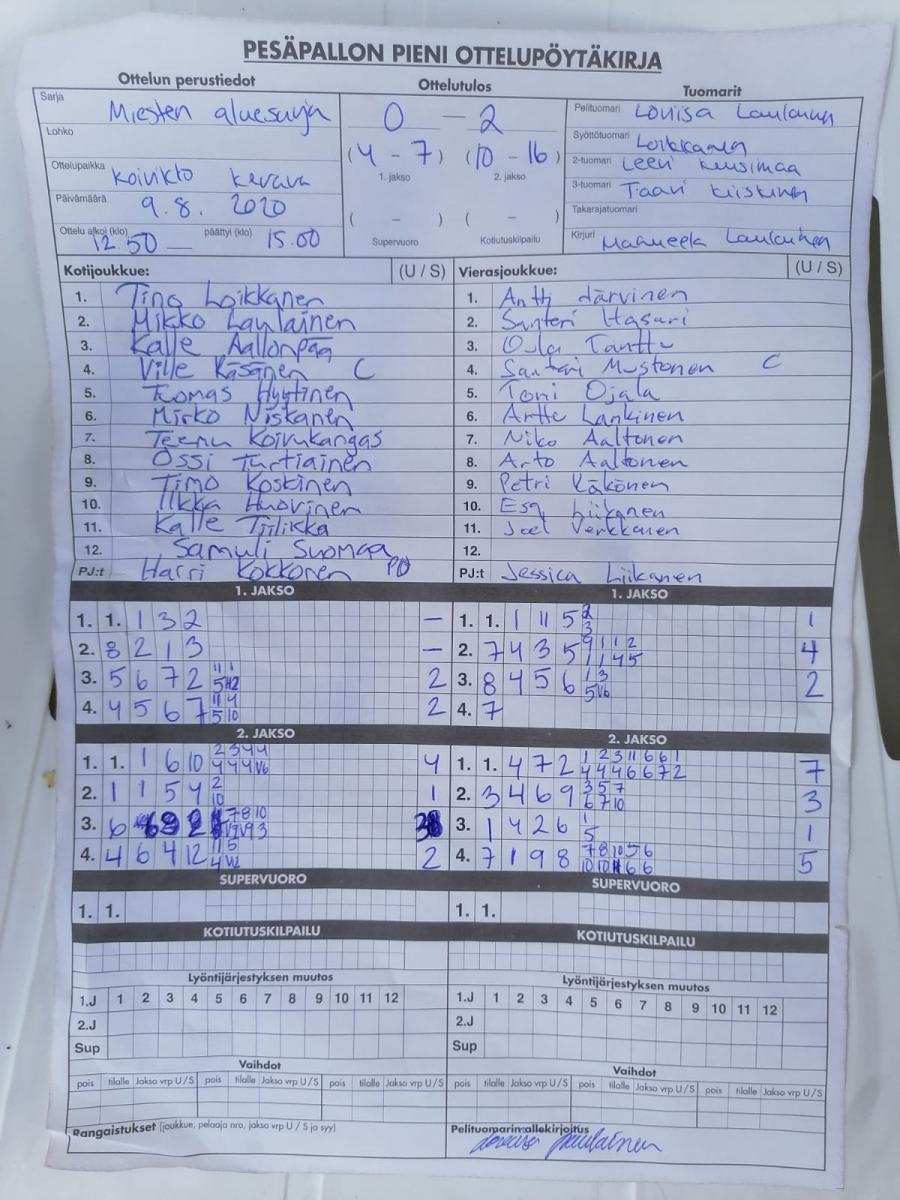 PESÄPALLON PIENI OTTELUPÖYTÄKIRJA
Ottelun perustiedot
Ottelutulos
Tuomarit
Sarja Miesten aluesarja
Lohko
Ottelupaikka Koivikto Kerava
Päivämäärä 9.8. 2020
Ottelu alkoi (klo) 12.50 — päättyi (klo) 15.00
0 — 2
(4 - 7) (10 - 16)
1. jakso 2. jakso
( - ) ( - )
Supervuoro Kotiutuskilpailu
Pelituomari Lovisa
Syöttötuomari Loikkanen
2-tuomari Leevi Kuusimaa
3-tuomari Taavi Kiiskinen
Takarajatuomari
Kirjuri Laulainen
Kotijoukkue: (U / S)
1. Tino Loikkanen
2. Mikko Laulainen
3. Kalle Aallonpää
4. Ville Käsänen C
5. Tuomas Hyytinen
6. Mirko Niskanen
7. Teemu Koivukangas
8. Ossi Turtiainen
9. Timo Koskinen
10. Ilkka Huovinen
11. Kalle Tiilikka
12. Samuli Suomaa
PJ:t Harri Kokkonen
Vierasjoukkue: (U / S)
1. Antti Järvinen
2. Santeri Hasari
3. Oula Tanttu
4. Santeri Mustonen C
5. Toni Ojala
6. Arttu Lankinen
7. Niko Aaltonen
8. Arto Aaltonen
9. Petri Käkönen
10. Esa Liikanen
11. Joel Verkkanen
12.
PJ:t Jessica Liikanen
1. JAKSO
1. 1. 1 3 2 —
2. 8 2 1 3 —
3. 5 6 7 2 2
4. 4 5 6 7 2
1. JAKSO
1. 1. 1 11 5 1
2. 7 4 3 5 4
3. 8 4 5 6 2
4. 7
2. JAKSO
1. 1. 1 6 10 4
2. 1 1 5 4 1
3. 6
4. 4 6 4 12 2
2. JAKSO
1. 1. 4 7 2 7
2. 3 4 6 9 3
3. 1 4 2 6 1
4. 7 1 9 8 5
SUPERVUORO
1. 1.
SUPERVUORO
1. 1.
KOTIUTUSKILPAILU
KOTIUTUSKILPAILU
Lyöntijärjestyksen muutos
1.J 1 2 3 4 5 6 7 8 9 10 11 12
2.J
Sup
Lyöntijärjestyksen muutos
1.J 1 2 3 4 5 6 7 8 9 10 11 12
2.J
Sup
Vaihdot
pois tilalle Jakso vrp U / S pois tilalle Jakso vrp U / S pois tilalle Jakso vrp U / S
Vaihdot
pois tilalle Jakso vrp U / S pois tilalle Jakso vrp U / S pois tilalle Jakso vrp U / S
Rangaistukset (joukkue, pelaaja nro, jakso vrp U / S ja syy)
Pelituomarin allekirjoitus